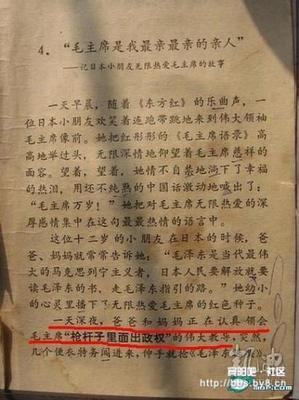 4．“毛主席是我最亲最亲的亲人”
——记日本小朋友无限热爱毛主席的故事
一天早晨，随着《东方红》的乐曲声，一
位日本小朋友欢笑着连跑带跳地来到伟大领袖
毛主席像前。她把红彤彤的《毛主席语录》高
高地举过头，无限深情地仰望着毛主席慈祥的
面容。望着，望着，她情不自禁地淌下了幸福
的热泪，用还不纯熟的中国话激动地喊出了：
“毛主席万岁！”她把对毛主席无限热爱的深
厚感情集中在这句最最热情的语言中。
这位十二岁的小朋友在日本的时候，爸
爸、妈妈就常常告诉她：“毛泽东是当代最伟
大的马克思列宁主义者，日本人民要解放就要
读毛泽东的书，走毛泽东指引的路。”她幼小
的心灵里播下了无限热爱毛主席的红色种子。
一天深夜，爸爸和妈妈正在认真领会
毛主席“枪杆子里面出政权”的伟大教导，突然，
几个便衣特务闯进来，伸手就抢《毛泽东
http://bbs.by8.cn